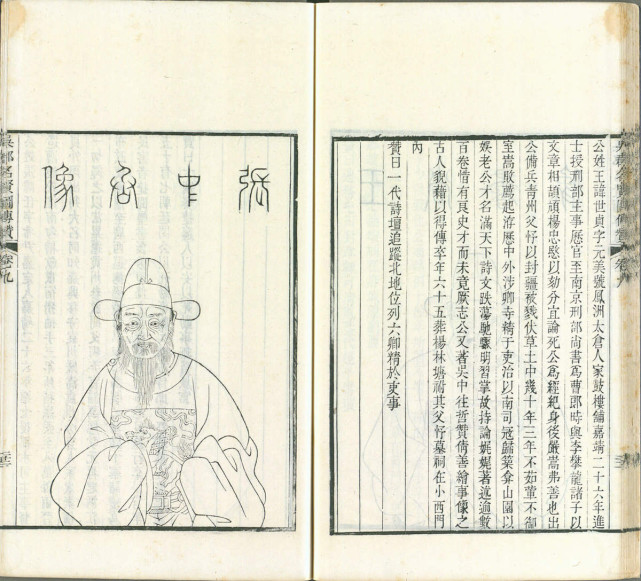 公姓王諱世貞字元美號鳳洲太倉人家鼓樓舖嘉靖二十六年進
士授刑部主事歷官至南京刑部尚書為曹郎時與李攀龍諸子以
文章相頡頏楊忠愍以劾分宜論死公為經紀身後嚴嵩弗善也出
公備兵青州父忬以封疆被戮伏草土中幾十年三年不茹葷不御
室嵩敗薦起洊歷中外涉卿寺精于吏治以南司寇歸築弇山園以
娛老公才名滿天下詩文跌蕩馳驟明習掌故持論娓娓著述逾數
百卷惜有良史才而未竟厥志公又著吳中往哲贊倩善繪事像之
古人貌藉以得傳卒年六十五葬楊林塘祔其父忬墓祠在小西門
內
贊曰一代詩壇追蹤北地位列六卿精於吏事
張中丞像
吳郡名賢圖傳贊 卷九